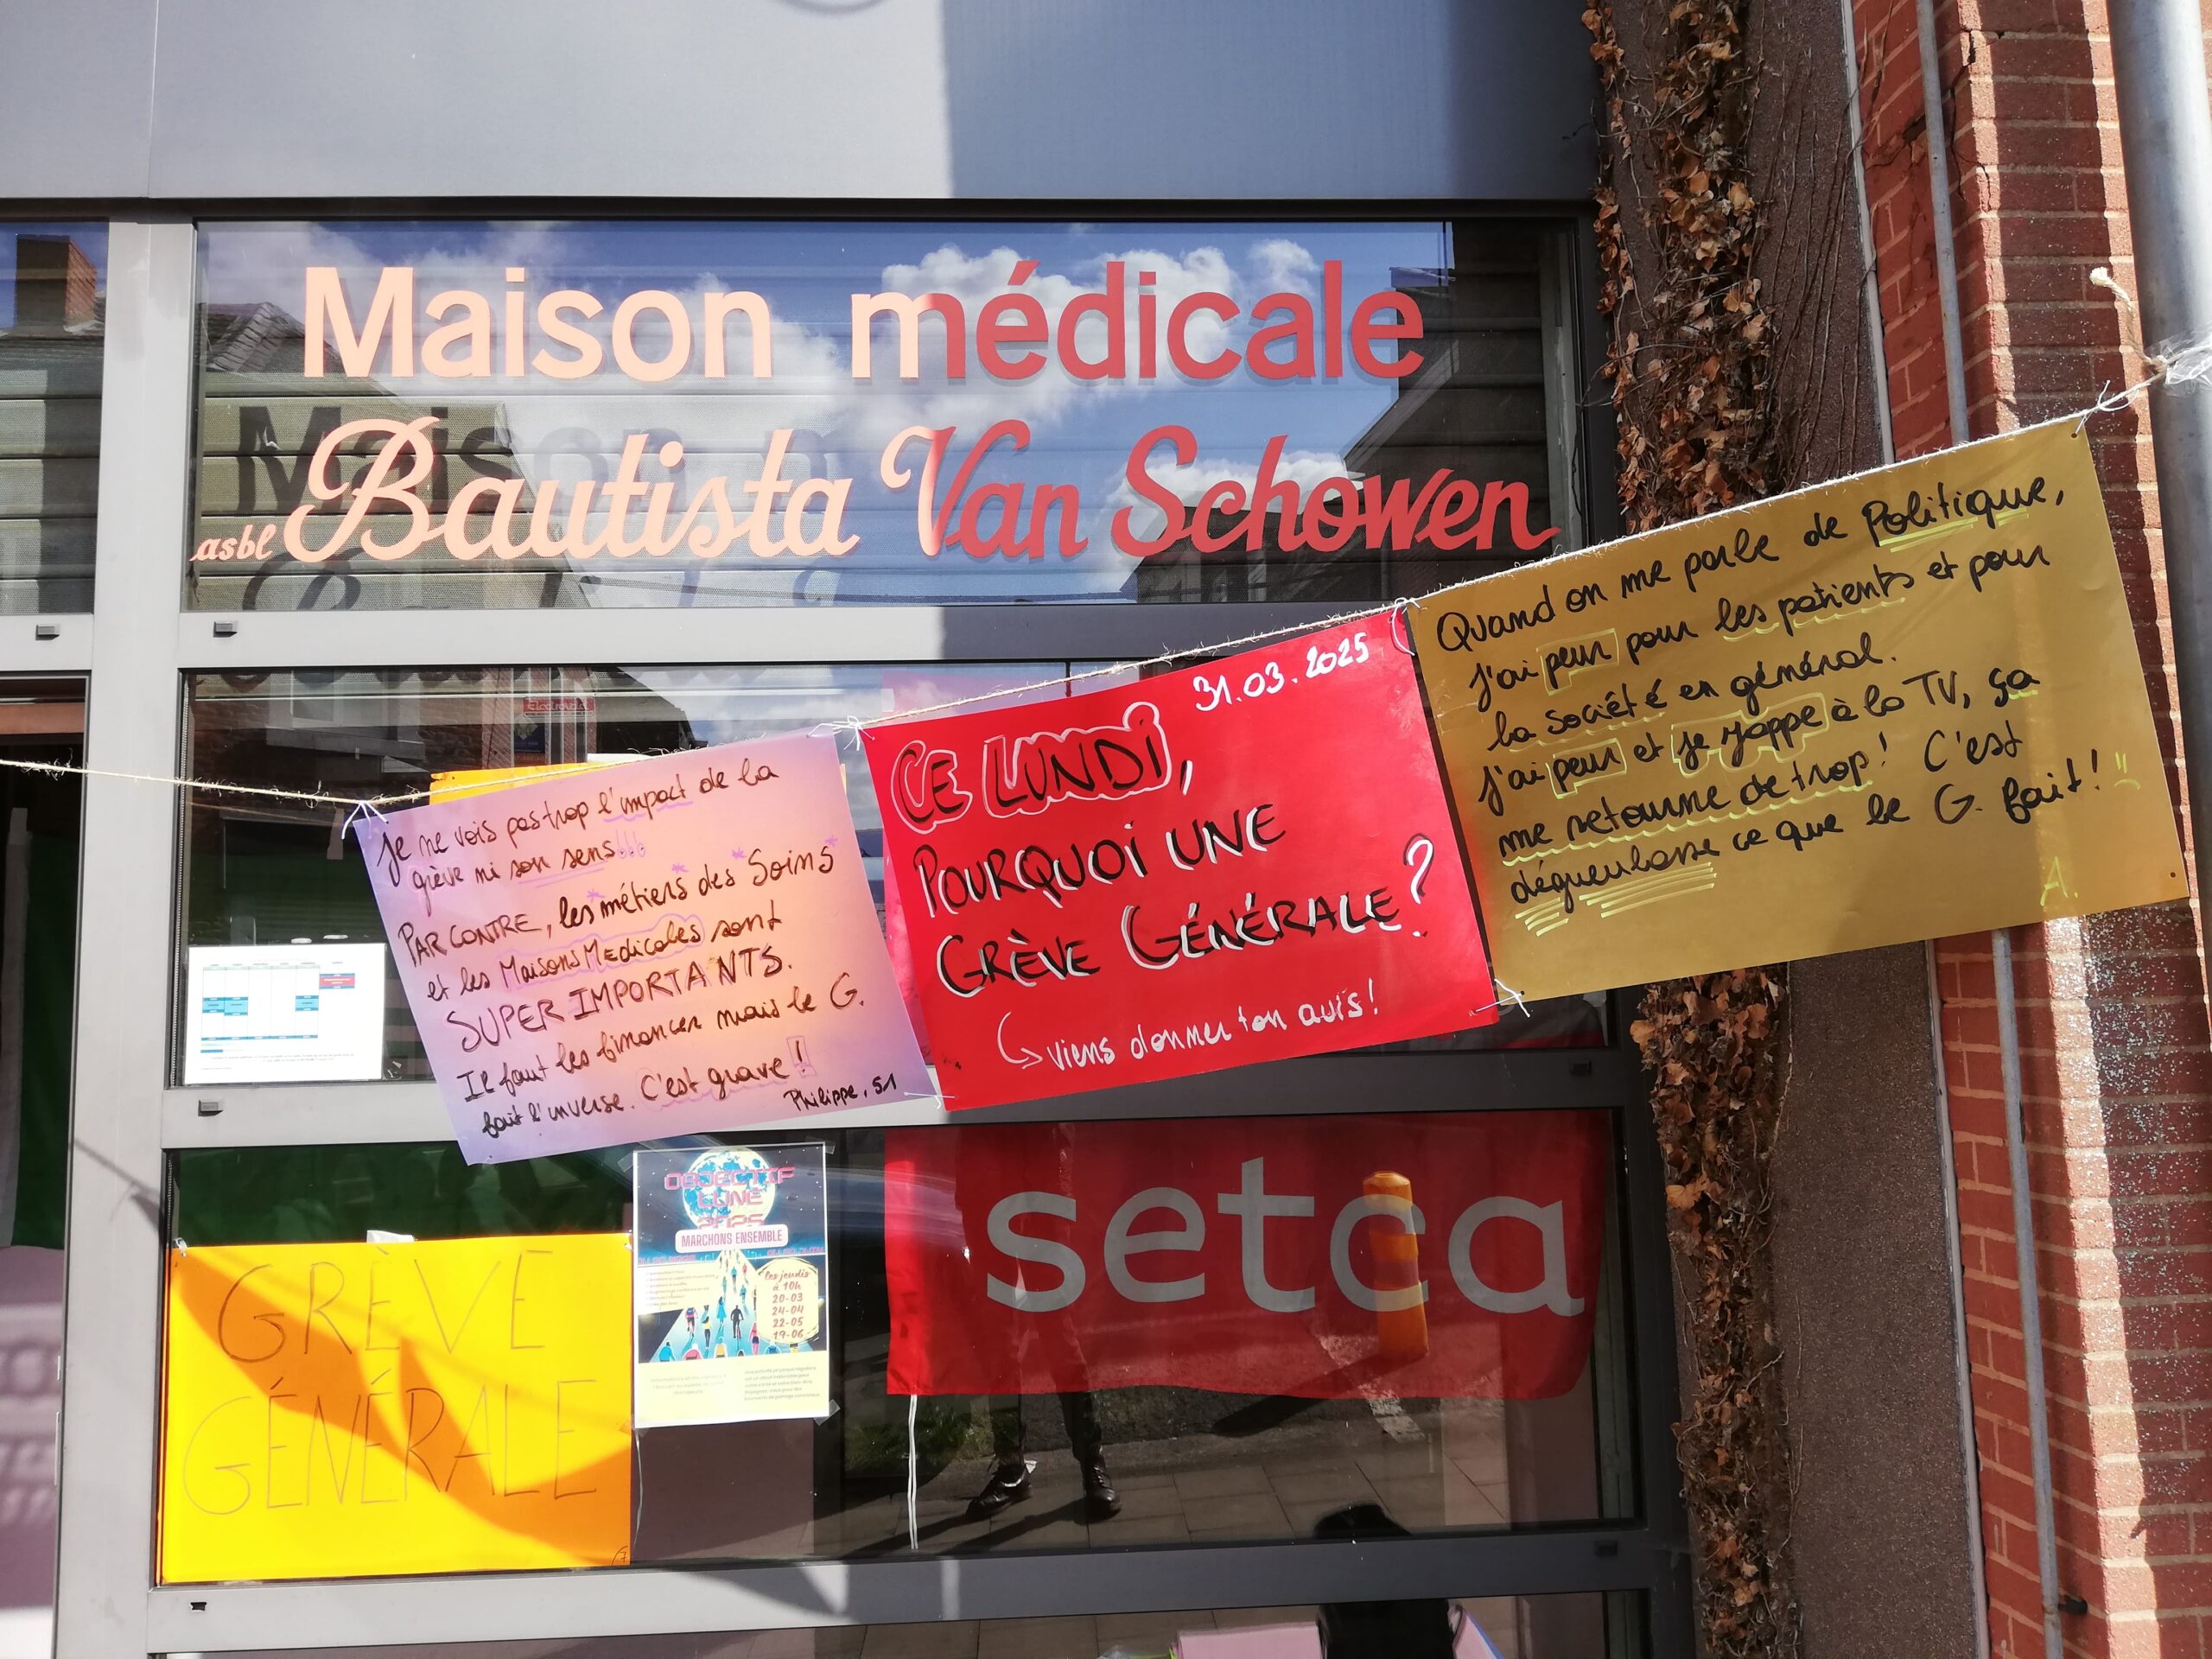 Maison médicale
asbl Bautista Van Schowen
Je ne vois pas trop l'impact de la
grève ni son sens!!!
PAR CONTRE, les "métiers" des "Soins"
et les Maisons Médicales sont
SUPER IMPORTANTS.
Il faut les financer mais le G.
fait l'inverse. C'est grave!
Philippe, 51
31.03.2025
CE LUNDI,
POURQUOI UNE
GRÈVE GÉNÉRALE?
viens donner ton avis!
Quand on me parle de Politique,
j'ai peur pour les patients et pour
la société en général.
j'ai peur et je zappe à la TV, ça
me retourne de trop! C'est
dégueulasse ce que le G. fait! !!
A.
GRÈVE
GÉNÉRALE
OBJECTIF
LUNE
2025
MARCHONS ENSEMBLE
les jeudis
à 10h
20-03
24-04
22-05
19-06
setca